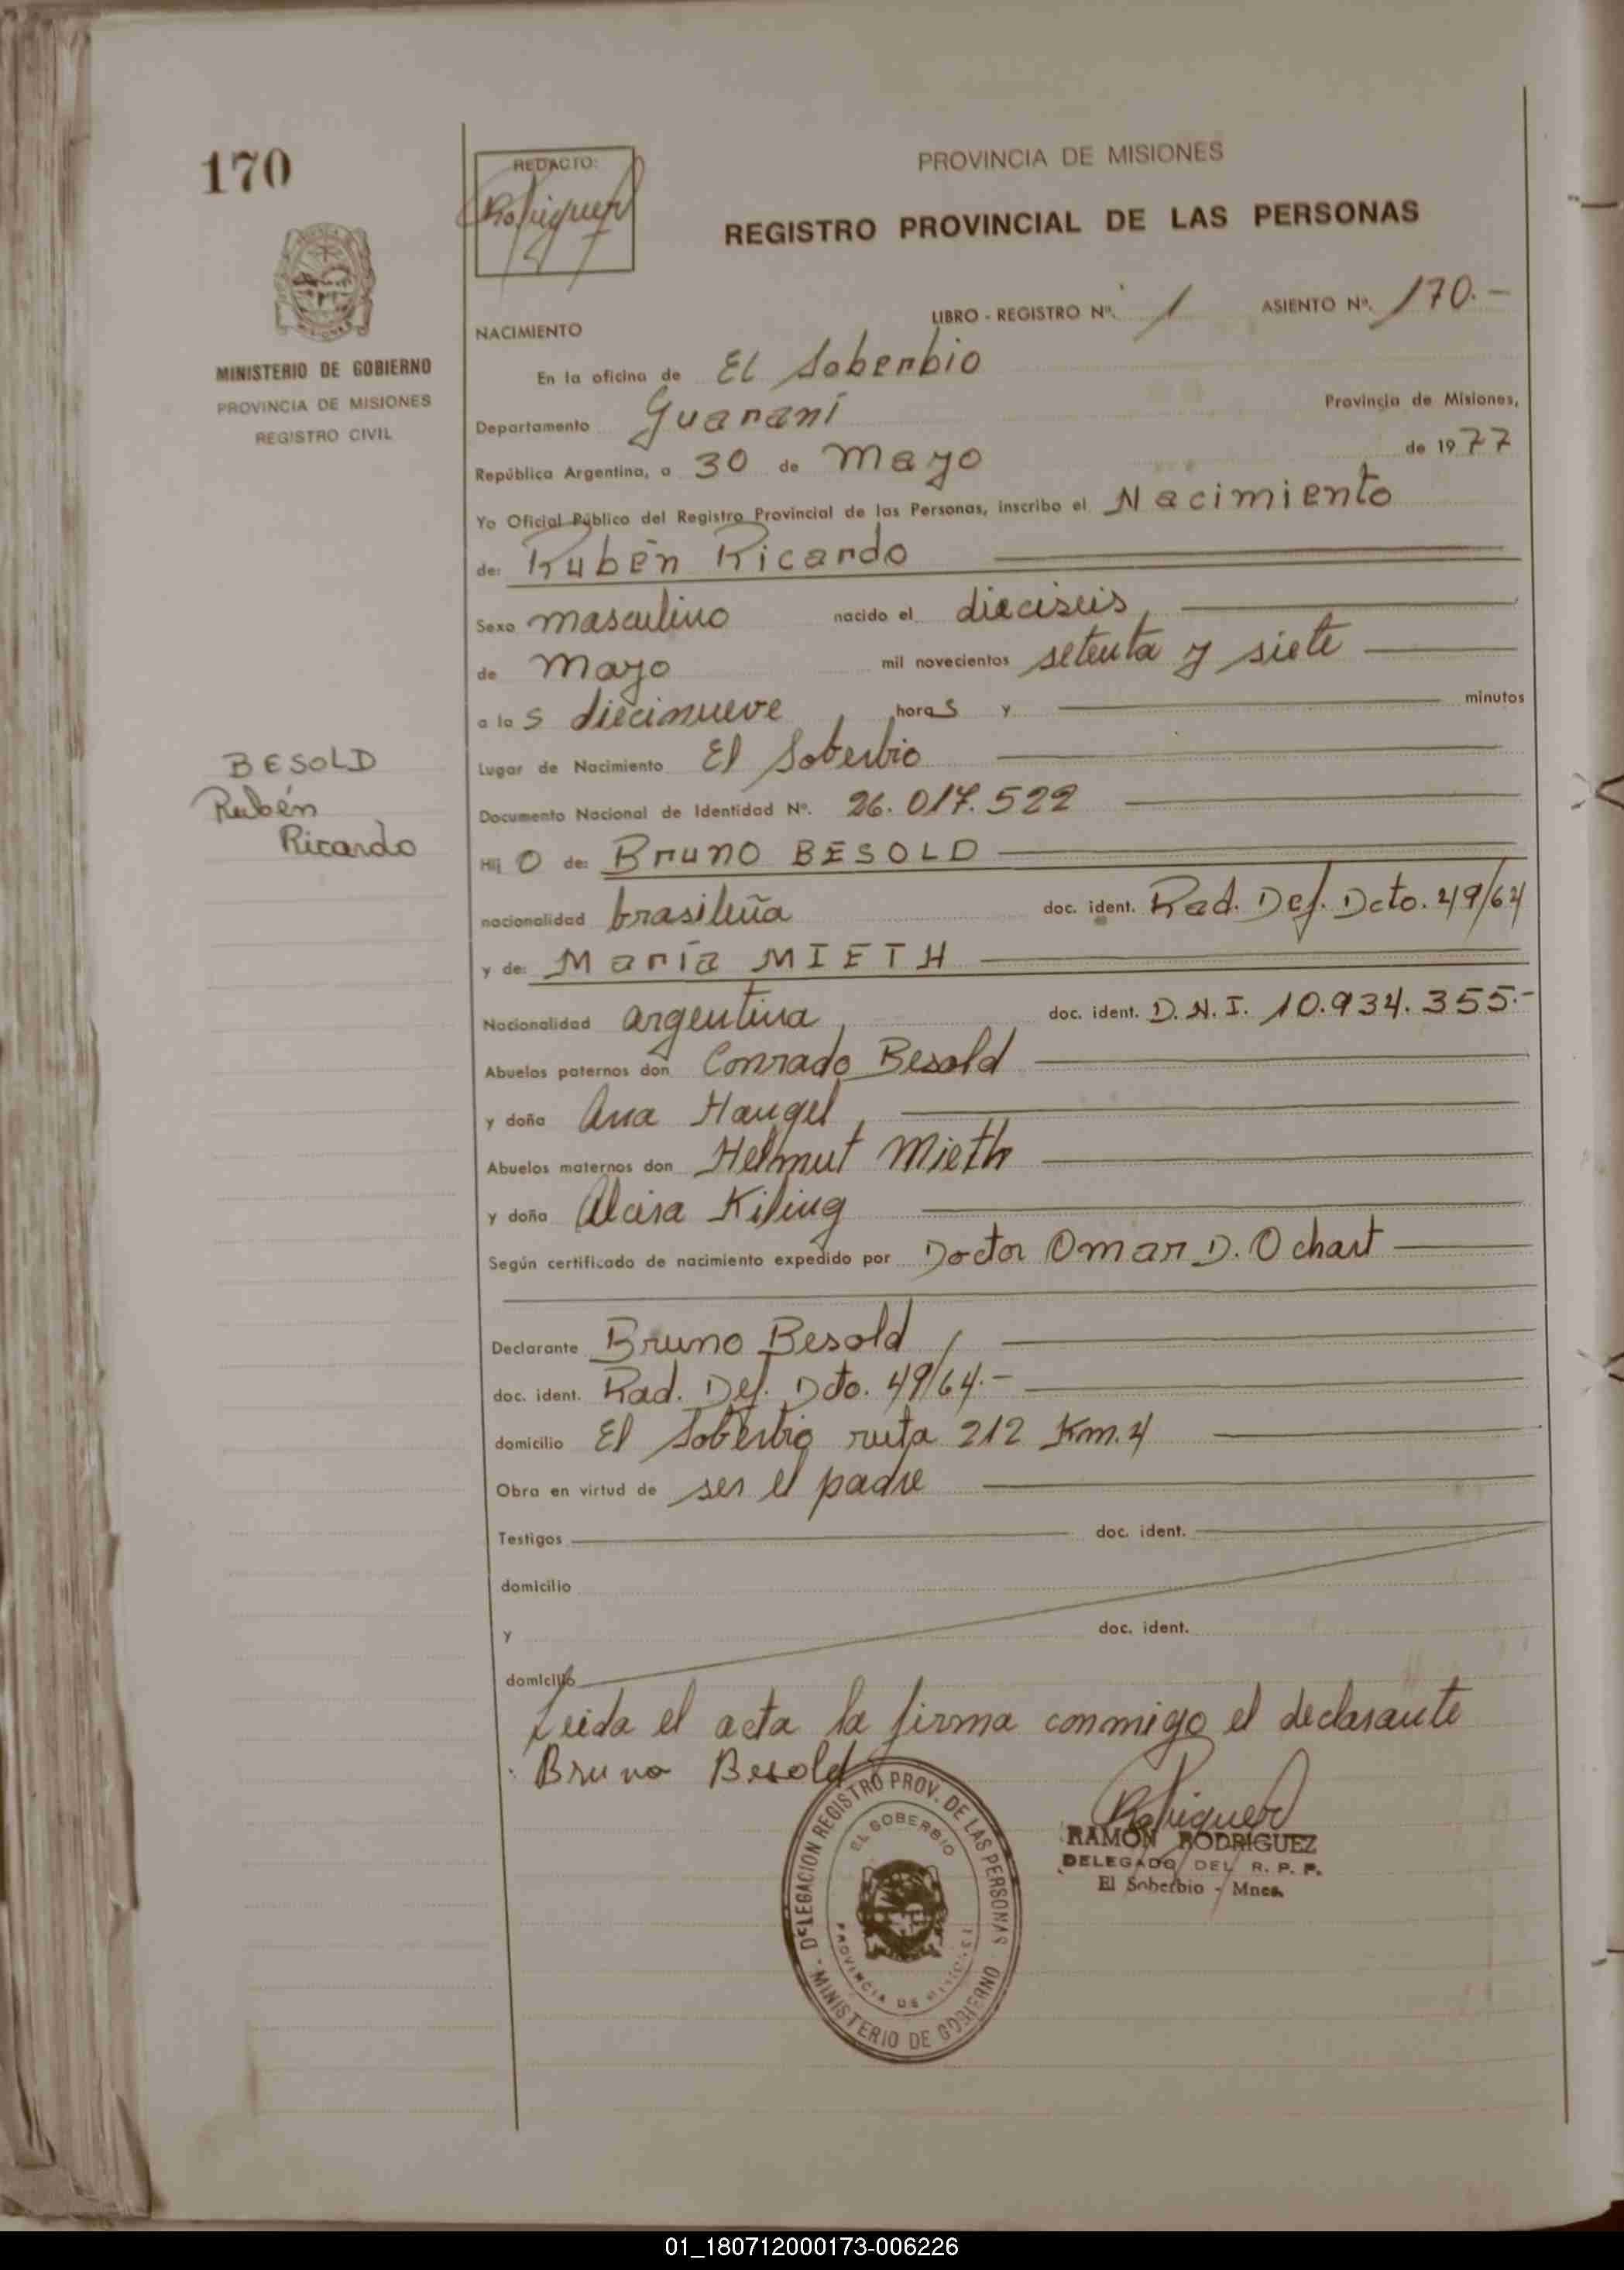 170
REDACTO:
Rodriguez
PROVINCIA DE MISIONES
REGISTRO PROVINCIAL DE LAS PERSONAS
LIBRO - REGISTRO Nº. 1 ASIENTO Nº. 170.-
NACIMIENTO
MINISTERIO DE GOBIERNO
PROVINCIA DE MISIONES
REGISTRO CIVIL
En la oficina de El Soberbio
Departamento Guaraní Provincia de Misiones,
República Argentina, a 30 de Mayo de 1977
Yo Oficial Público del Registro Provincial de las Personas, inscribo el Nacimiento
de: Rubén Ricardo
Sexo masculino nacido el dieciseis,
de Mayo mil novecientos setenta y siete
a las diecinueve, horas y minutos
Lugar de Nacimiento El Soberbio
BESOLD
Rubén
Ricardo
Documento Nacional de Identidad Nº. 26.017.522
Hijo de: Bruno BESOLD
nacionalidad brasileña doc. ident. Rad. Def. Dcto. 49/64
y de: María MIETH
Nacionalidad argentina, doc. ident. D.N.I. 10.934.355.-
Abuelos paternos don Conrado Besold
y doña Ana Haugel,
Abuelos maternos don Helmut Mieth
y doña Alcira Kiling
Según certificado de nacimiento expedido por Doctor Omar D. Ochart
Declarante Bruno Besold,
doc. ident. Rad. Def. Dcto. 49/64.-
domicilio El Soberbio ruta 212 Km. 4
Obra en virtud de ser el padre
Testigos doc. ident.
domicilio
y doc. ident.
domicilio
Leida el acta la firma conmigo el declarante
Bruno Besold
Rodriguez
RAMON RODRIGUEZ
DELEGADO DEL R. P. P.
El Soberbio - Mnes.
DELEGACION REGISTRO PROV. DE LAS PERSONAS
EL SOBERBIO
PROVINCIA DE MISIONES
MINISTERIO DE GOBIERNO
01_180712000173-006226